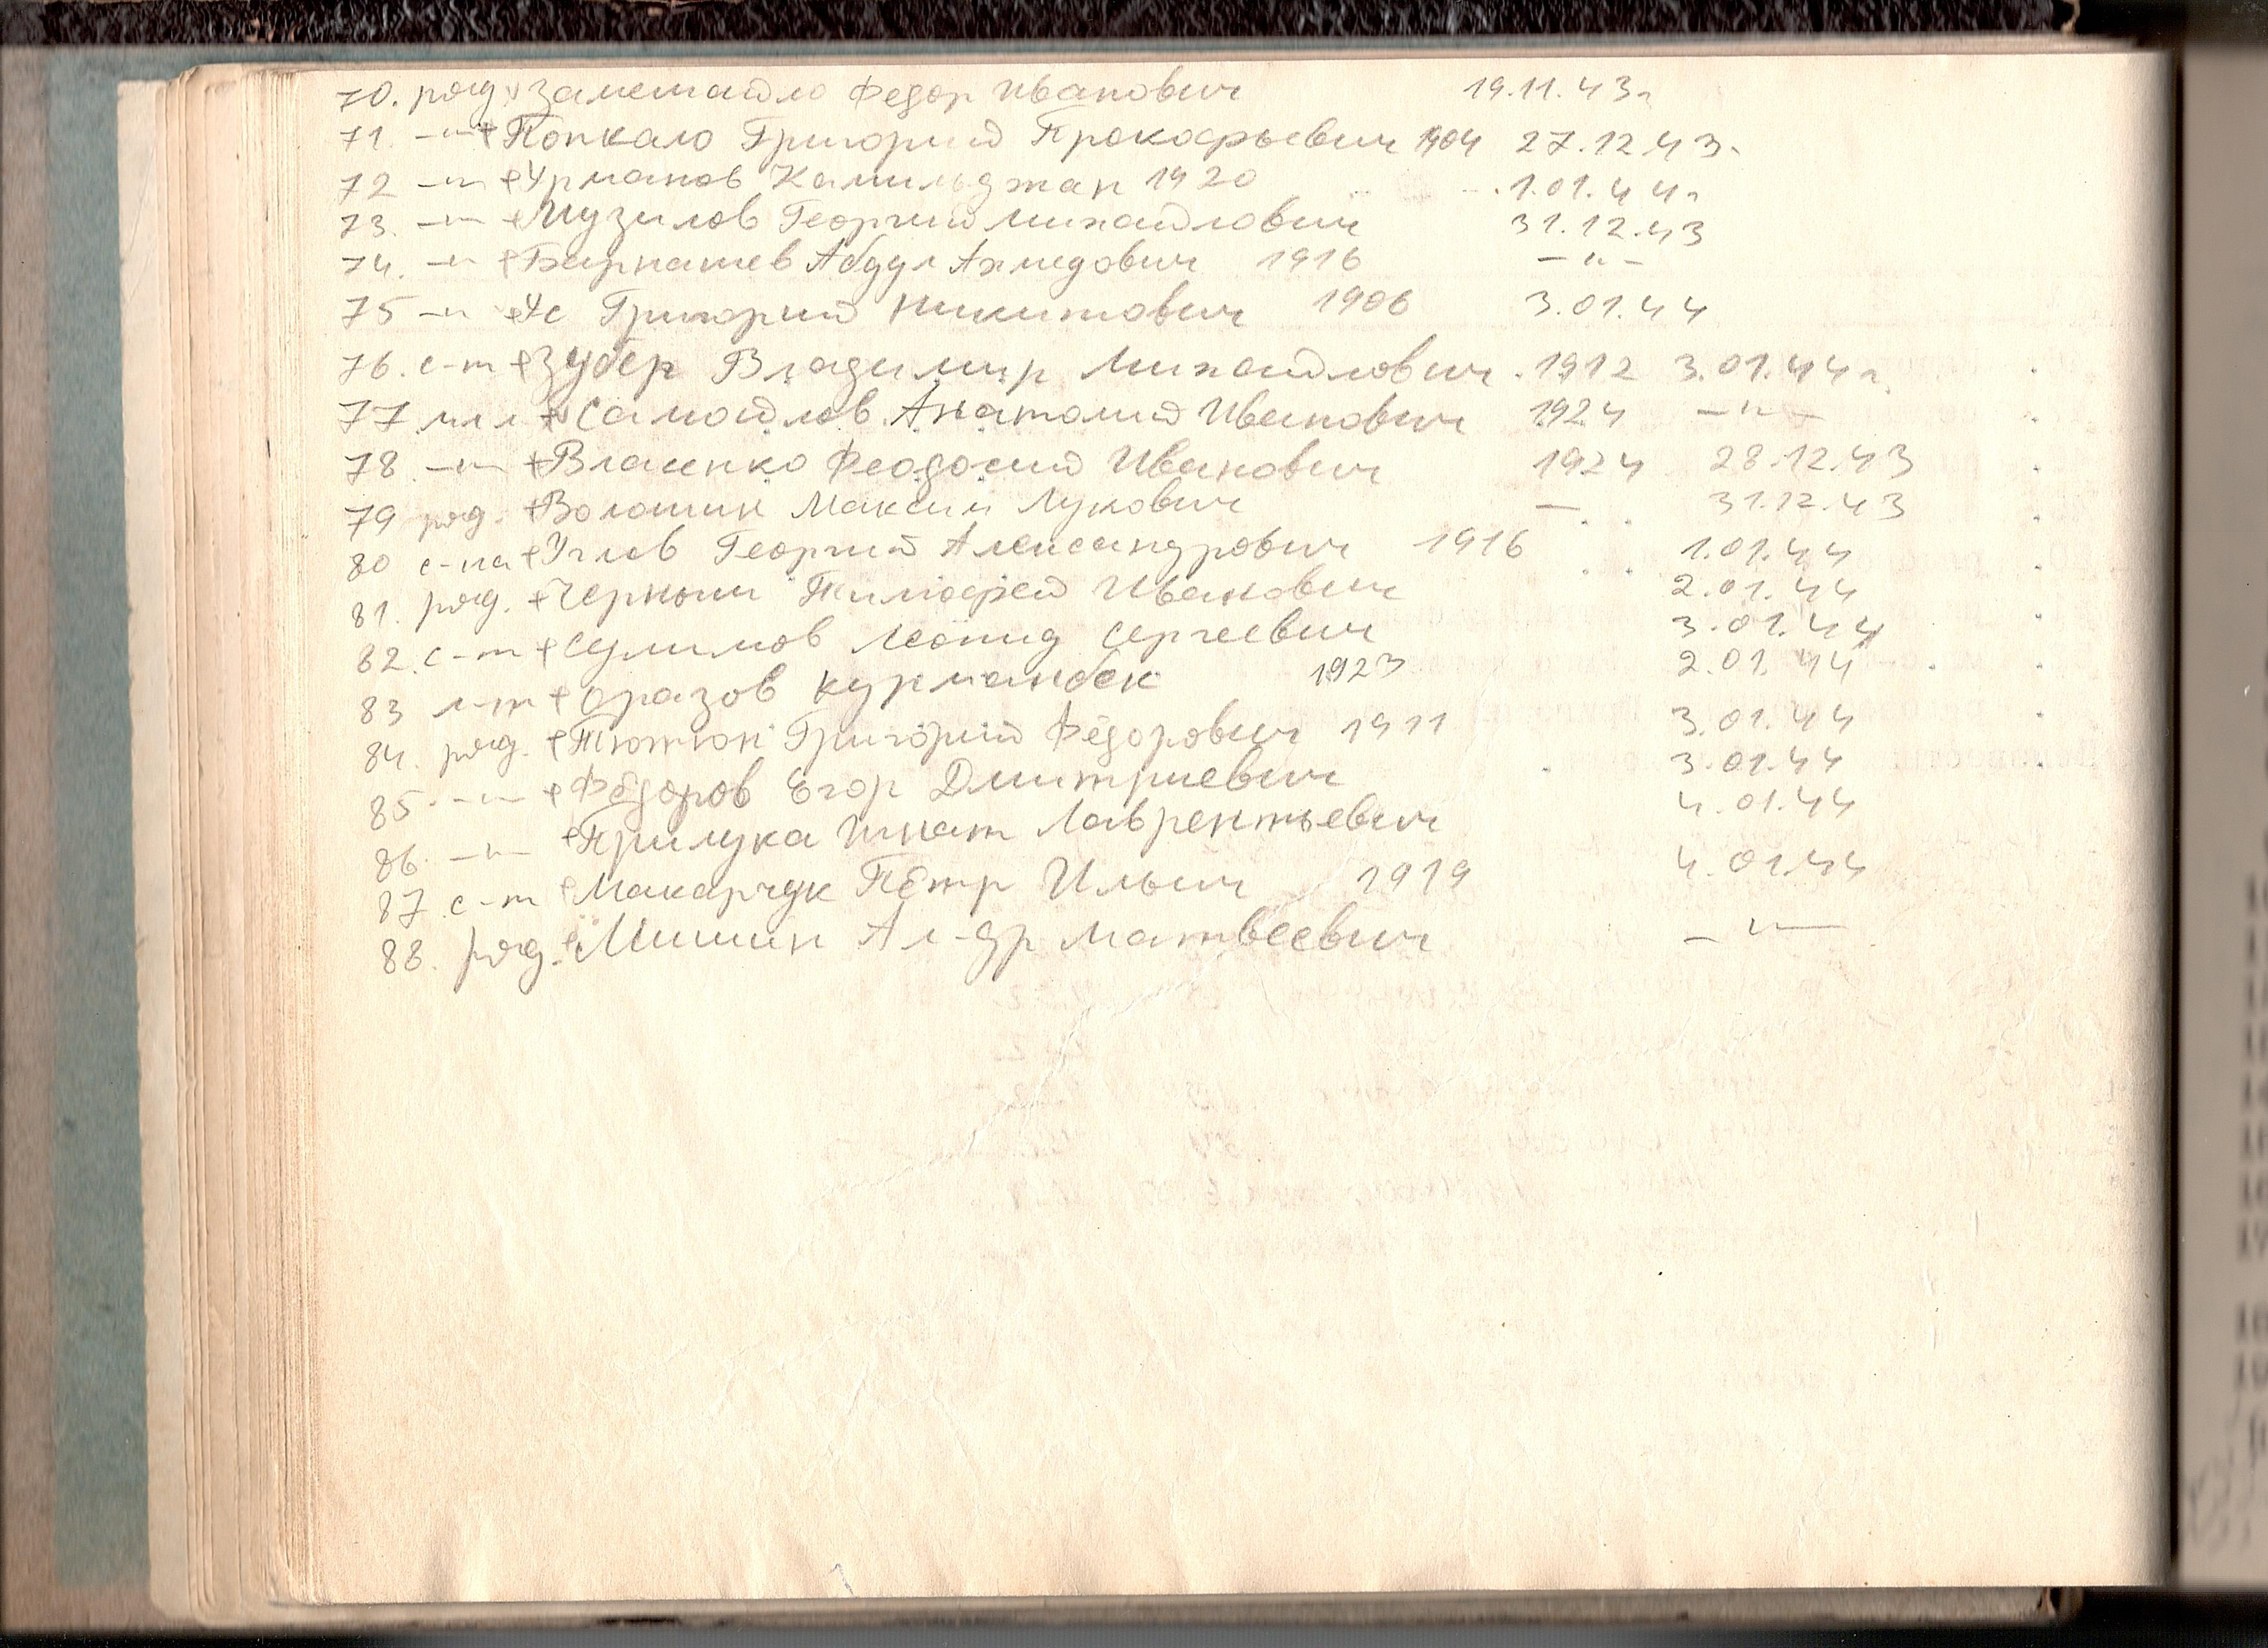 70. ряд. v Заметайло Федор Иванович 19.11.43г
71. —"— + Попкало Григорий Прокофьевич 1904 27.12.43.
72 —"— + Урманов Камильджан 1920 1.01.44г
73. —"— + Музилов Георгий Михайлович 31.12.43
74. —"— + Абдул Ахмедович 1916 —"—
75 —"— + Ус Григорий Никитович 1906 3.01.44
76. с-т + Зубер Владимир Михайлович. 1912 3.01.44г.
77 мл л + Самойлов Анатолий Иванович 1924 —"—
78 —"— + Власенко Феодосий Иванович 1924 28.12.43
79 ряд. + Волошин Максим Лукович — 31.12.43
80 с-на + Углев Георгий Александрович 1916 1.01.44
81. ряд. + Черныш Тимофей Иванович 2.01.44
82. с-т + Сулимов Леонид Сергеевич 3.01.44
83 л-т + Оразов Курманбек 1923 2.01.44
84. ряд. + Тютюн Григорий Фёдорович 1911 3.01.44
85. —"— + Фёдоров Егор Дмитриевич 3.01.44
86. —"— + Прилука Игнат Лаврентьевич 4.01.44
87 с-т + Макарчук Пётр Ильич 1919 4.01.44
88. ряд. + Мишин Ал-др Матвеевич —"—